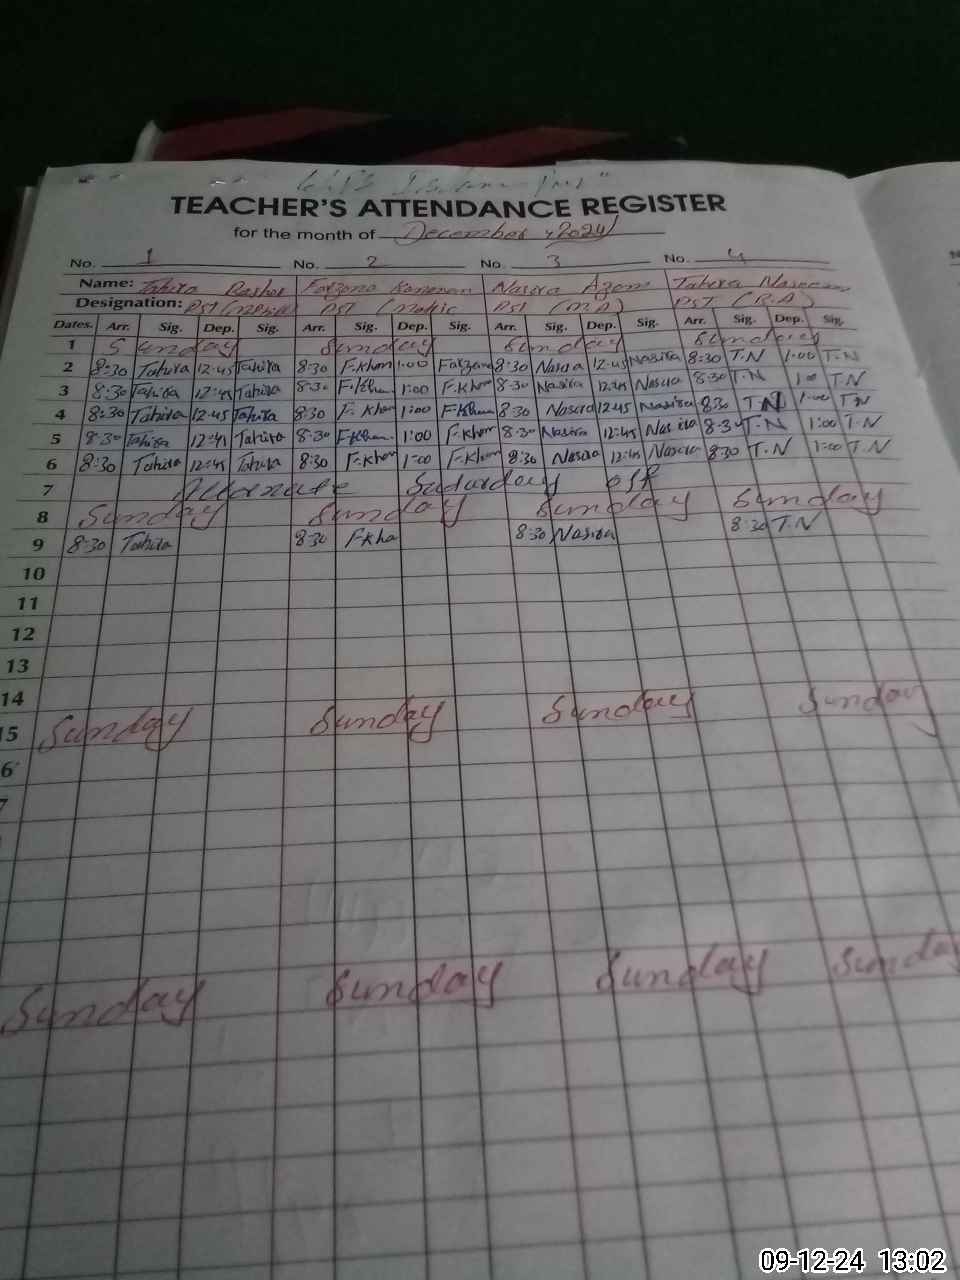 TEACHER'S ATTENDANCE REGISTER
for the month of December 2024
No. 1 No. 2 No. 3 No. 4
Name: Tahira Farzana Nasira Azam Tahira Naseem
Designation: PST PST (Matric PST (M.A) PST (B.A)
Dates. Arr. Sig. Dep. Sig. Arr. Sig. Dep. Sig. Arr. Sig. Dep. Sig. Arr. Sig. Dep. Sig.
1 Sunday Sunday Sunday Sunday
2 8:30 Tahira 12:45 Tahira 8:30 F.khan 1:00 Farzana 8:30 Nasira 12:45 Nasira 8:30 T.N 1:00 T.N
3 8:30 Tahira 12:45 Tahira 8:30 F.khan 1:00 F.khan 8:30 Nasira 12:45 Nasira 8:30 T.N 1:00 T.N
4 8:30 Tahira 12:45 Tahira 8:30 F.khan 1:00 F.khan 8:30 Nasira 12:45 Nasira 8:30 T.N 1:00 T.N
5 8:30 Tahira 12:45 Tahira 8:30 F.khan 1:00 F.khan 8:30 Nasira 12:45 Nasira 8:30 T.N 1:00 T.N
6 8:30 Tahira 12:45 Tahira 8:30 F.khan 1:00 F.khan 8:30 Nasira 12:45 Nasira 8:30 T.N 1:00 T.N
7 Alternate Saturday off
8 Sunday Sunday Sunday Sunday
9 8:30 Tahira 8:30 F.kha 8:30 Nasira 8:30 T.N
10
11
12
13
14
15 Sunday Sunday Sunday Sunday
6
7
Sunday Sunday Sunday Sunday
09-12-24 13:02